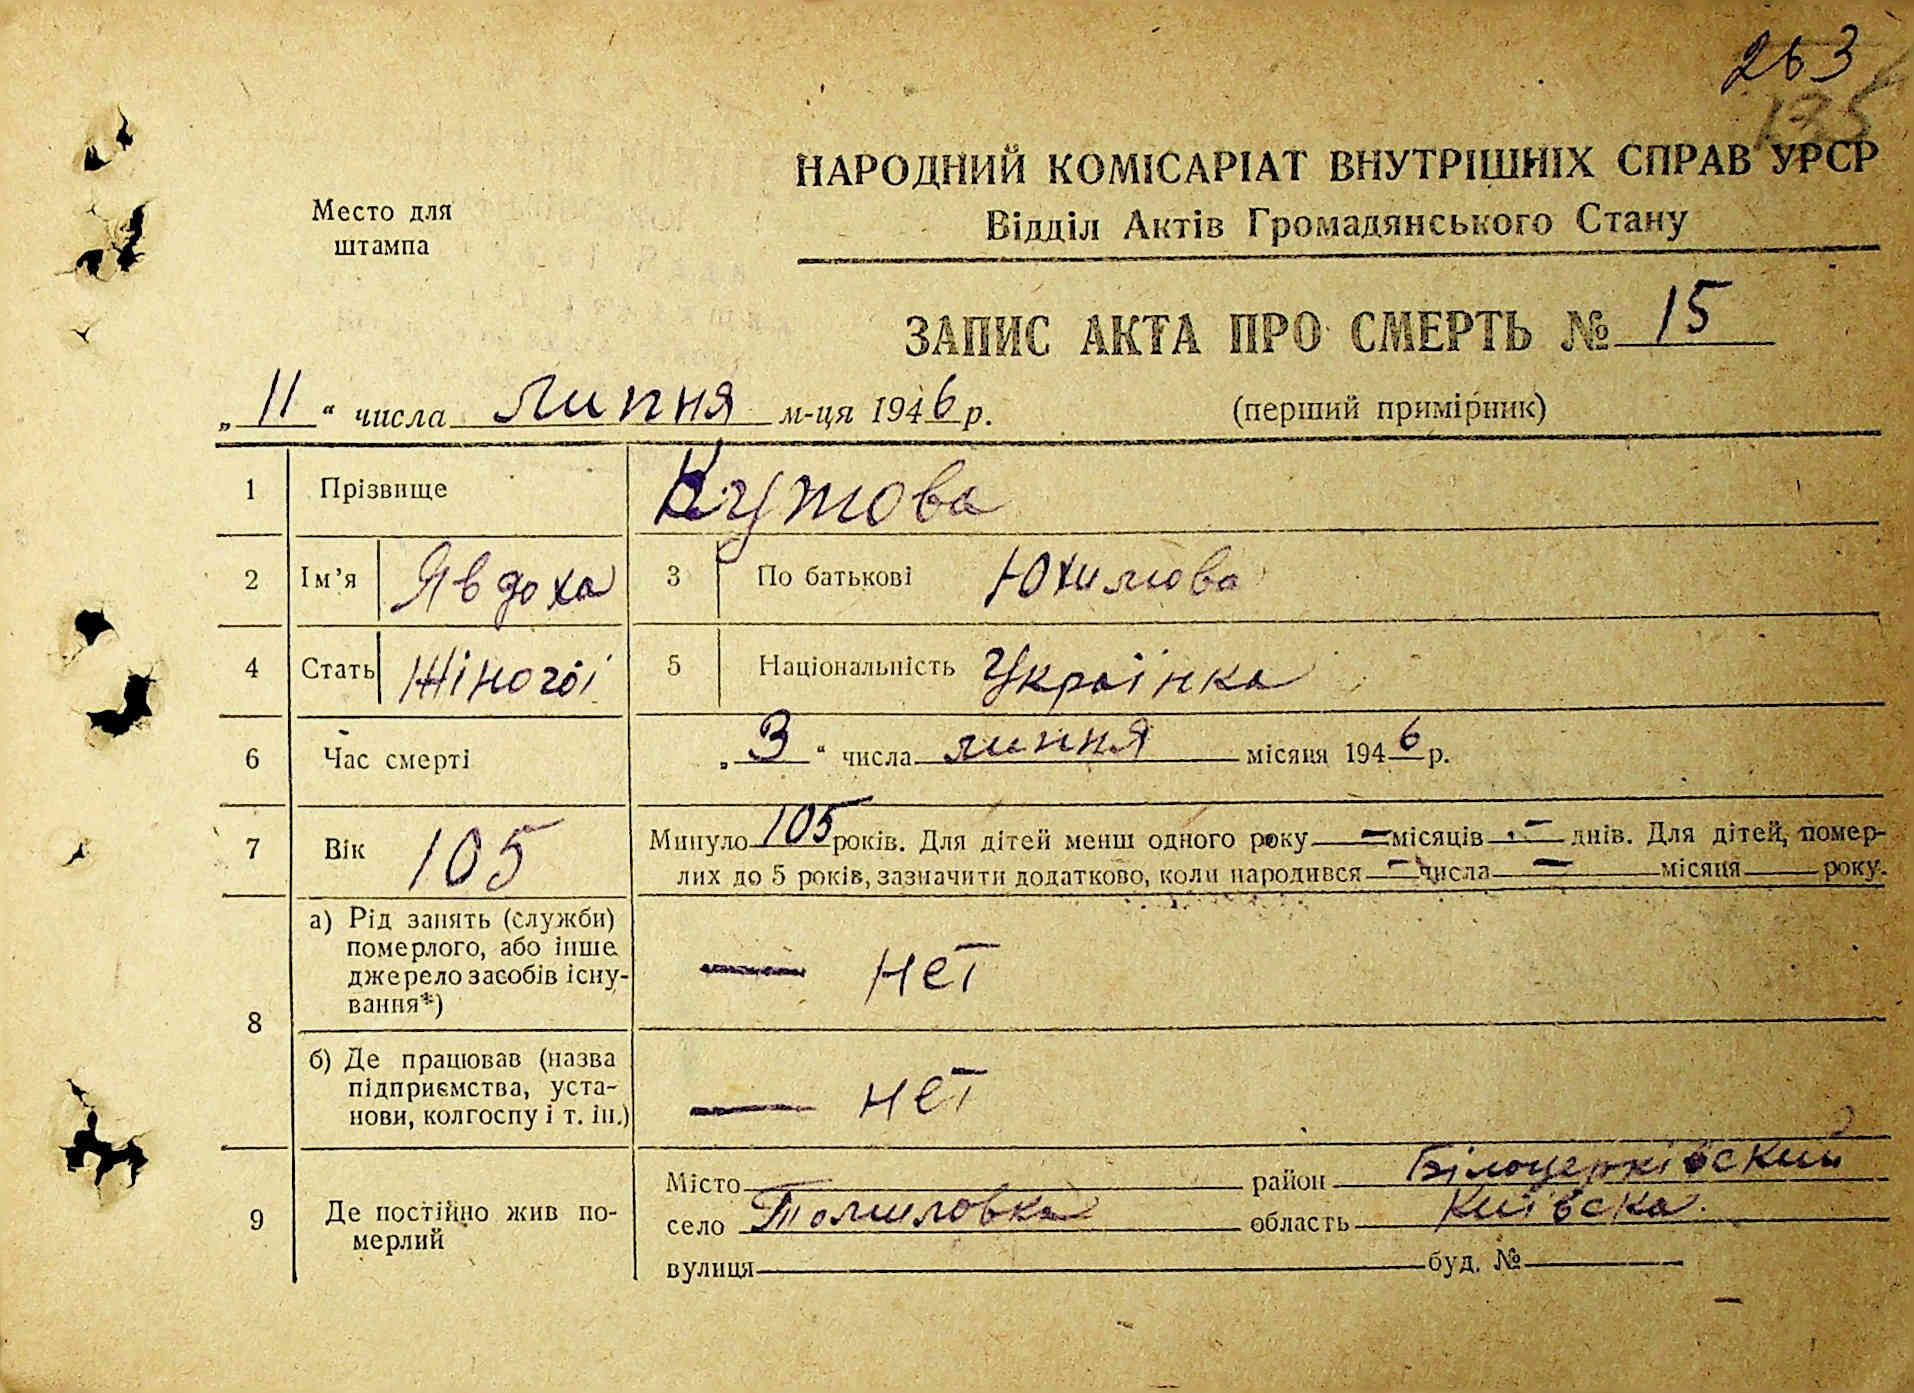 263
135
НАРОДНИЙ КОМІСАРІАТ ВНУТРІШНІХ СПРАВ УРСР
Відділ Актів Громадянського Стану
Место для
штампа
ЗАПИС АКТА ПРО СМЕРТЬ № 15
„ 11 “ числа липня м-ця 1946 р. (перший примірник)
1 Прізвище Кутова
2 Ім’я Явдоха 3 По батькові Юхимова
4 Стать Жіночої 5 Національність Українка
6 Час смерті „ 3 “ числа липня місяця 1946 р.
7 Вік 105 Минуло 105 років. Для дітей менш одного року — місяців — днів. Для дітей, помер-
лих до 5 років, зазначити додатково, коли народився — числа — місяця року.
8 а) Рід занять (служби)
померлого, або інше
джерело засобів існу-
вання*) — нет
б) Де працював (назва
підприємства, уста-
нови, колгоспу і т. ін.) — нет
9 Де постійно жив по-
мерлий
Місто район Білоцерківский
село Томиловка область Київска.
вулиця буд. №